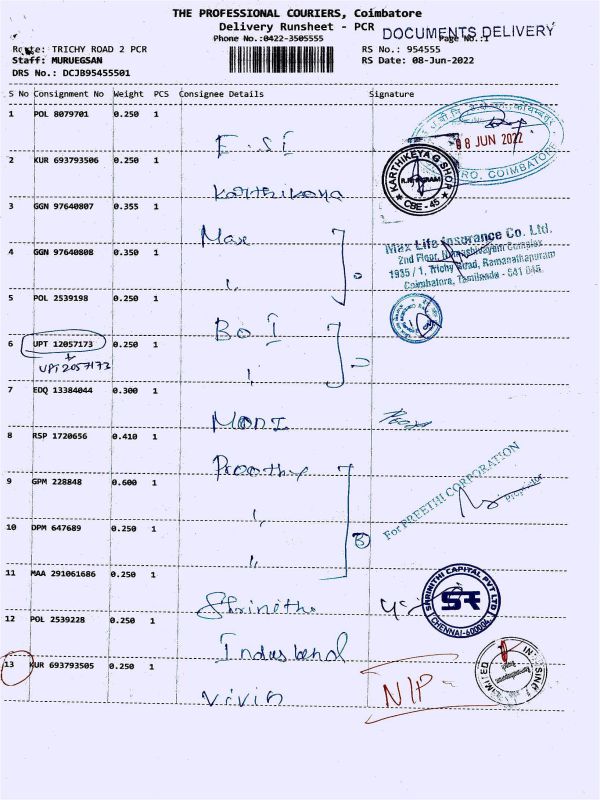 THE PROFESSIONAL COURIERS, Coimbatore
Delivery Runsheet - PCR
DOCUMENTS DELIVERY
Phone No.:0422-3505555
Page No.:1
Route: TRICHY ROAD 2 PCR
RS No.: 954555
Staff: MURUEGSAN
RS Date: 08-Jun-2022
DRS No.: DCJB95455501
S No Consignment No Weight PCS Consignee Details Signature
1 POL 8079701 0.250 1
E.S.I
08 JUN 2022
COIMBATORE
2 KUR 693793506 0.250 1
Karthikeya
KARTHIKEYA G SHOP
CBE - 45
3 GGN 97640807 0.355 1
Max
4 GGN 97640808 0.350 1
"
Max Life Insurance Co. Ltd.
2nd Floor, Complex
1935 / 1, Trichy Road, Ramanathapuram
Coimbatore, Tamilnadu - 641 045.
5 POL 2539198 0.250 1
BOI
6 UPT 12057173 0.250 1
UPT 2057173
"
7 EDQ 13384044 0.300 1
Mani
8 RSP 1720656 0.410 1
Preethy
9 GPM 228848 0.600 1
"
For PREETHI CORPORATION
Proprietor
10 DPM 647689 0.250 1
"
11 MAA 291061686 0.250 1
Shrinithi
SHRINITHI CAPITAL PVT LTD
CHENNAI-600004
12 POL 2539228 0.250 1
Indusbend
13 KUR 693793505 0.250 1
Vivin
N/P